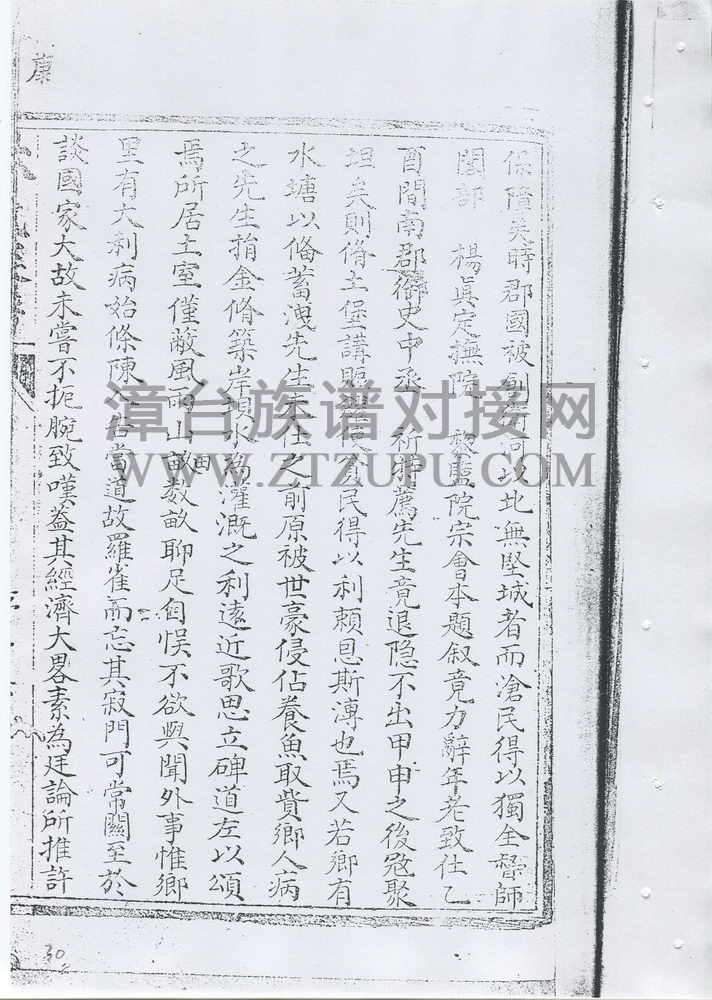 保障矣時郡國被創衛河以北無堅城者而滄民得以獨全督師
閣部 楊真定撫院 黎監院宗會本題叙竟力辭年老致仕乙
酉間南郡御史中丞 祈特薦先生竟退隐不出甲申之後冦聚
坦矣則脩土堡講 民得以利頼息斯漙也焉又若鄉有
水塘以俻蓄洩先生未仕之前原被世豪侵佔養魚取貲鄉人病
之先生捐金脩築岸 水為灌溉之利遠近歌思立碑道左以頌
焉所居土室僅蔽風雨山畝数畝聊足自悮不欲與聞外事惟鄉
田
里有大利病始條陳 當道故羅雀而忘其寂門可常關至於
談國家大故未嘗不扼腕致嘆葢其經濟大畧素為廷論所推許
康
30
漳台族谱对接网
WWW.ZTZUPU.COM